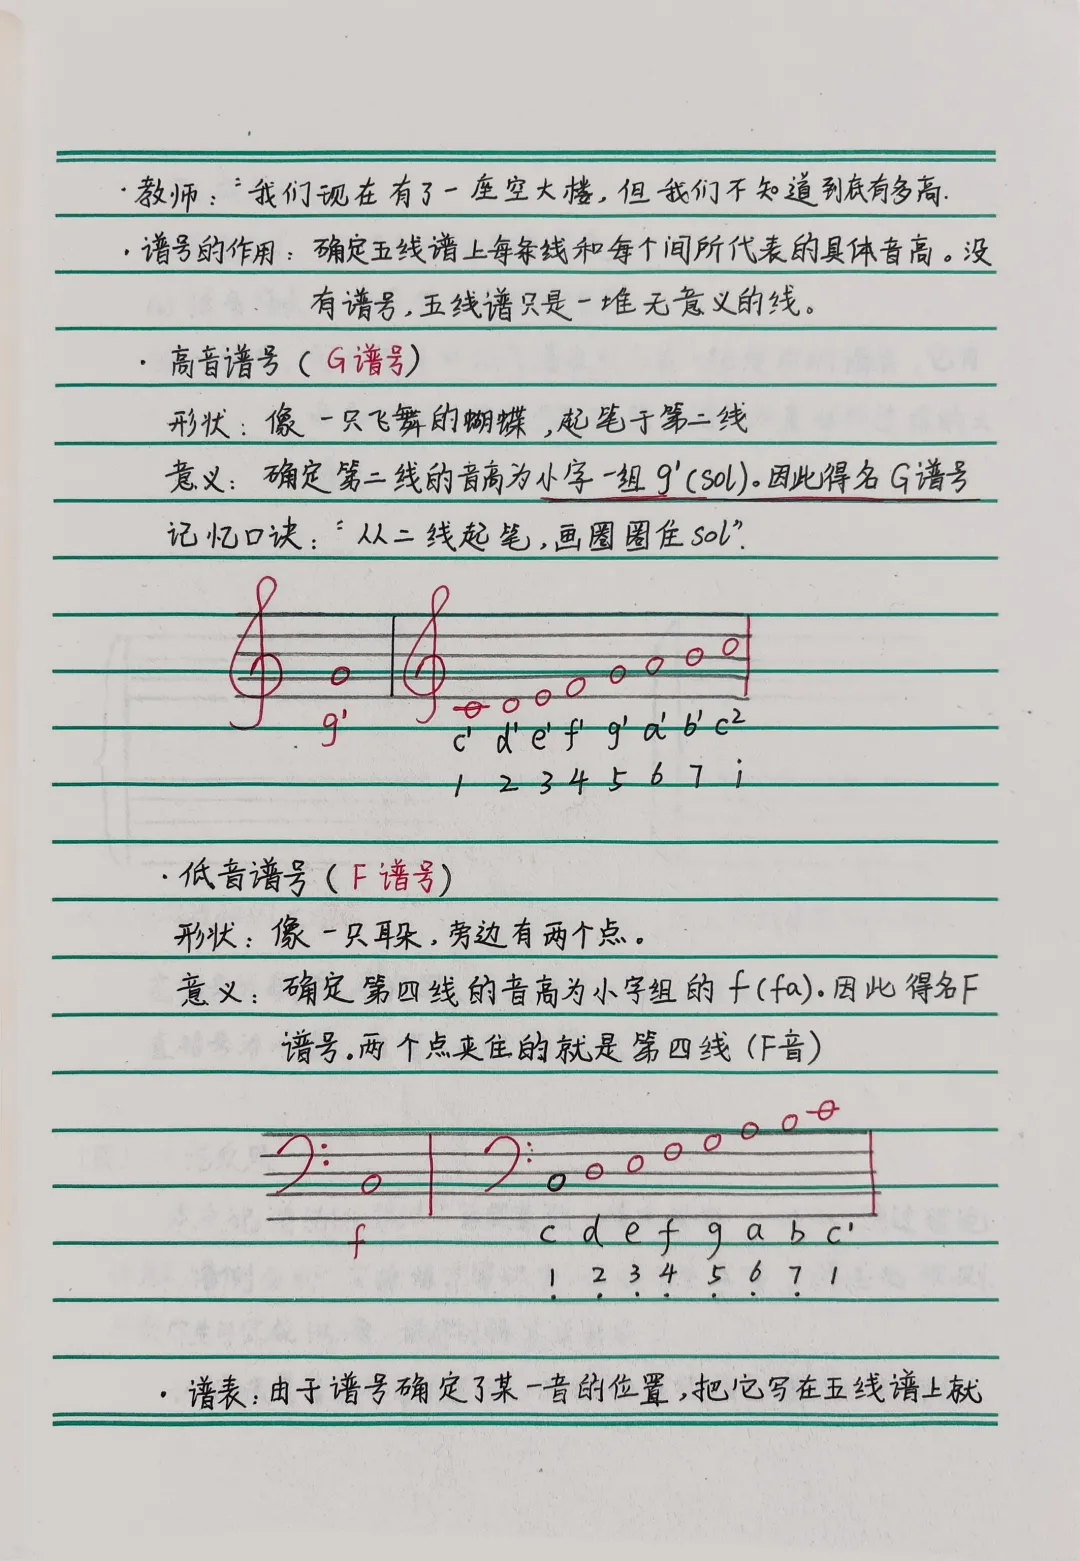 ·教师：“我们现在有了一座空大楼，但我们不知道到底有多高.
·谱号的作用：确定五线谱上每条线和每个间所代表的具体音高。没
有谱号，五线谱只是一堆无意义的线。
·高音谱号（G谱号）
形状：像一只飞舞的蝴蝶，起笔于第二线
意义：确定第二线的音高为小字一组g'(sol)。因此得名G谱号
记忆口诀：“从二线起笔，画圈圈住sol”.
g'
c' d' e' f' g' a' b' c²
1 2 3 4 5 6 7 i
·低音谱号（F谱号）
形状：像一只耳朵，旁边有两个点。
意义：确定第四线的音高为小字组的f(fa)。因此得名F
谱号。两个点夹住的就是第四线（F音）
f
c d e f g a b c'
1̣ 2̣ 3̣ 4̣ 5̣ 6̣ 7̣ 1
·谱表：由于谱号确定了某一音的位置，把它写在五线谱上就